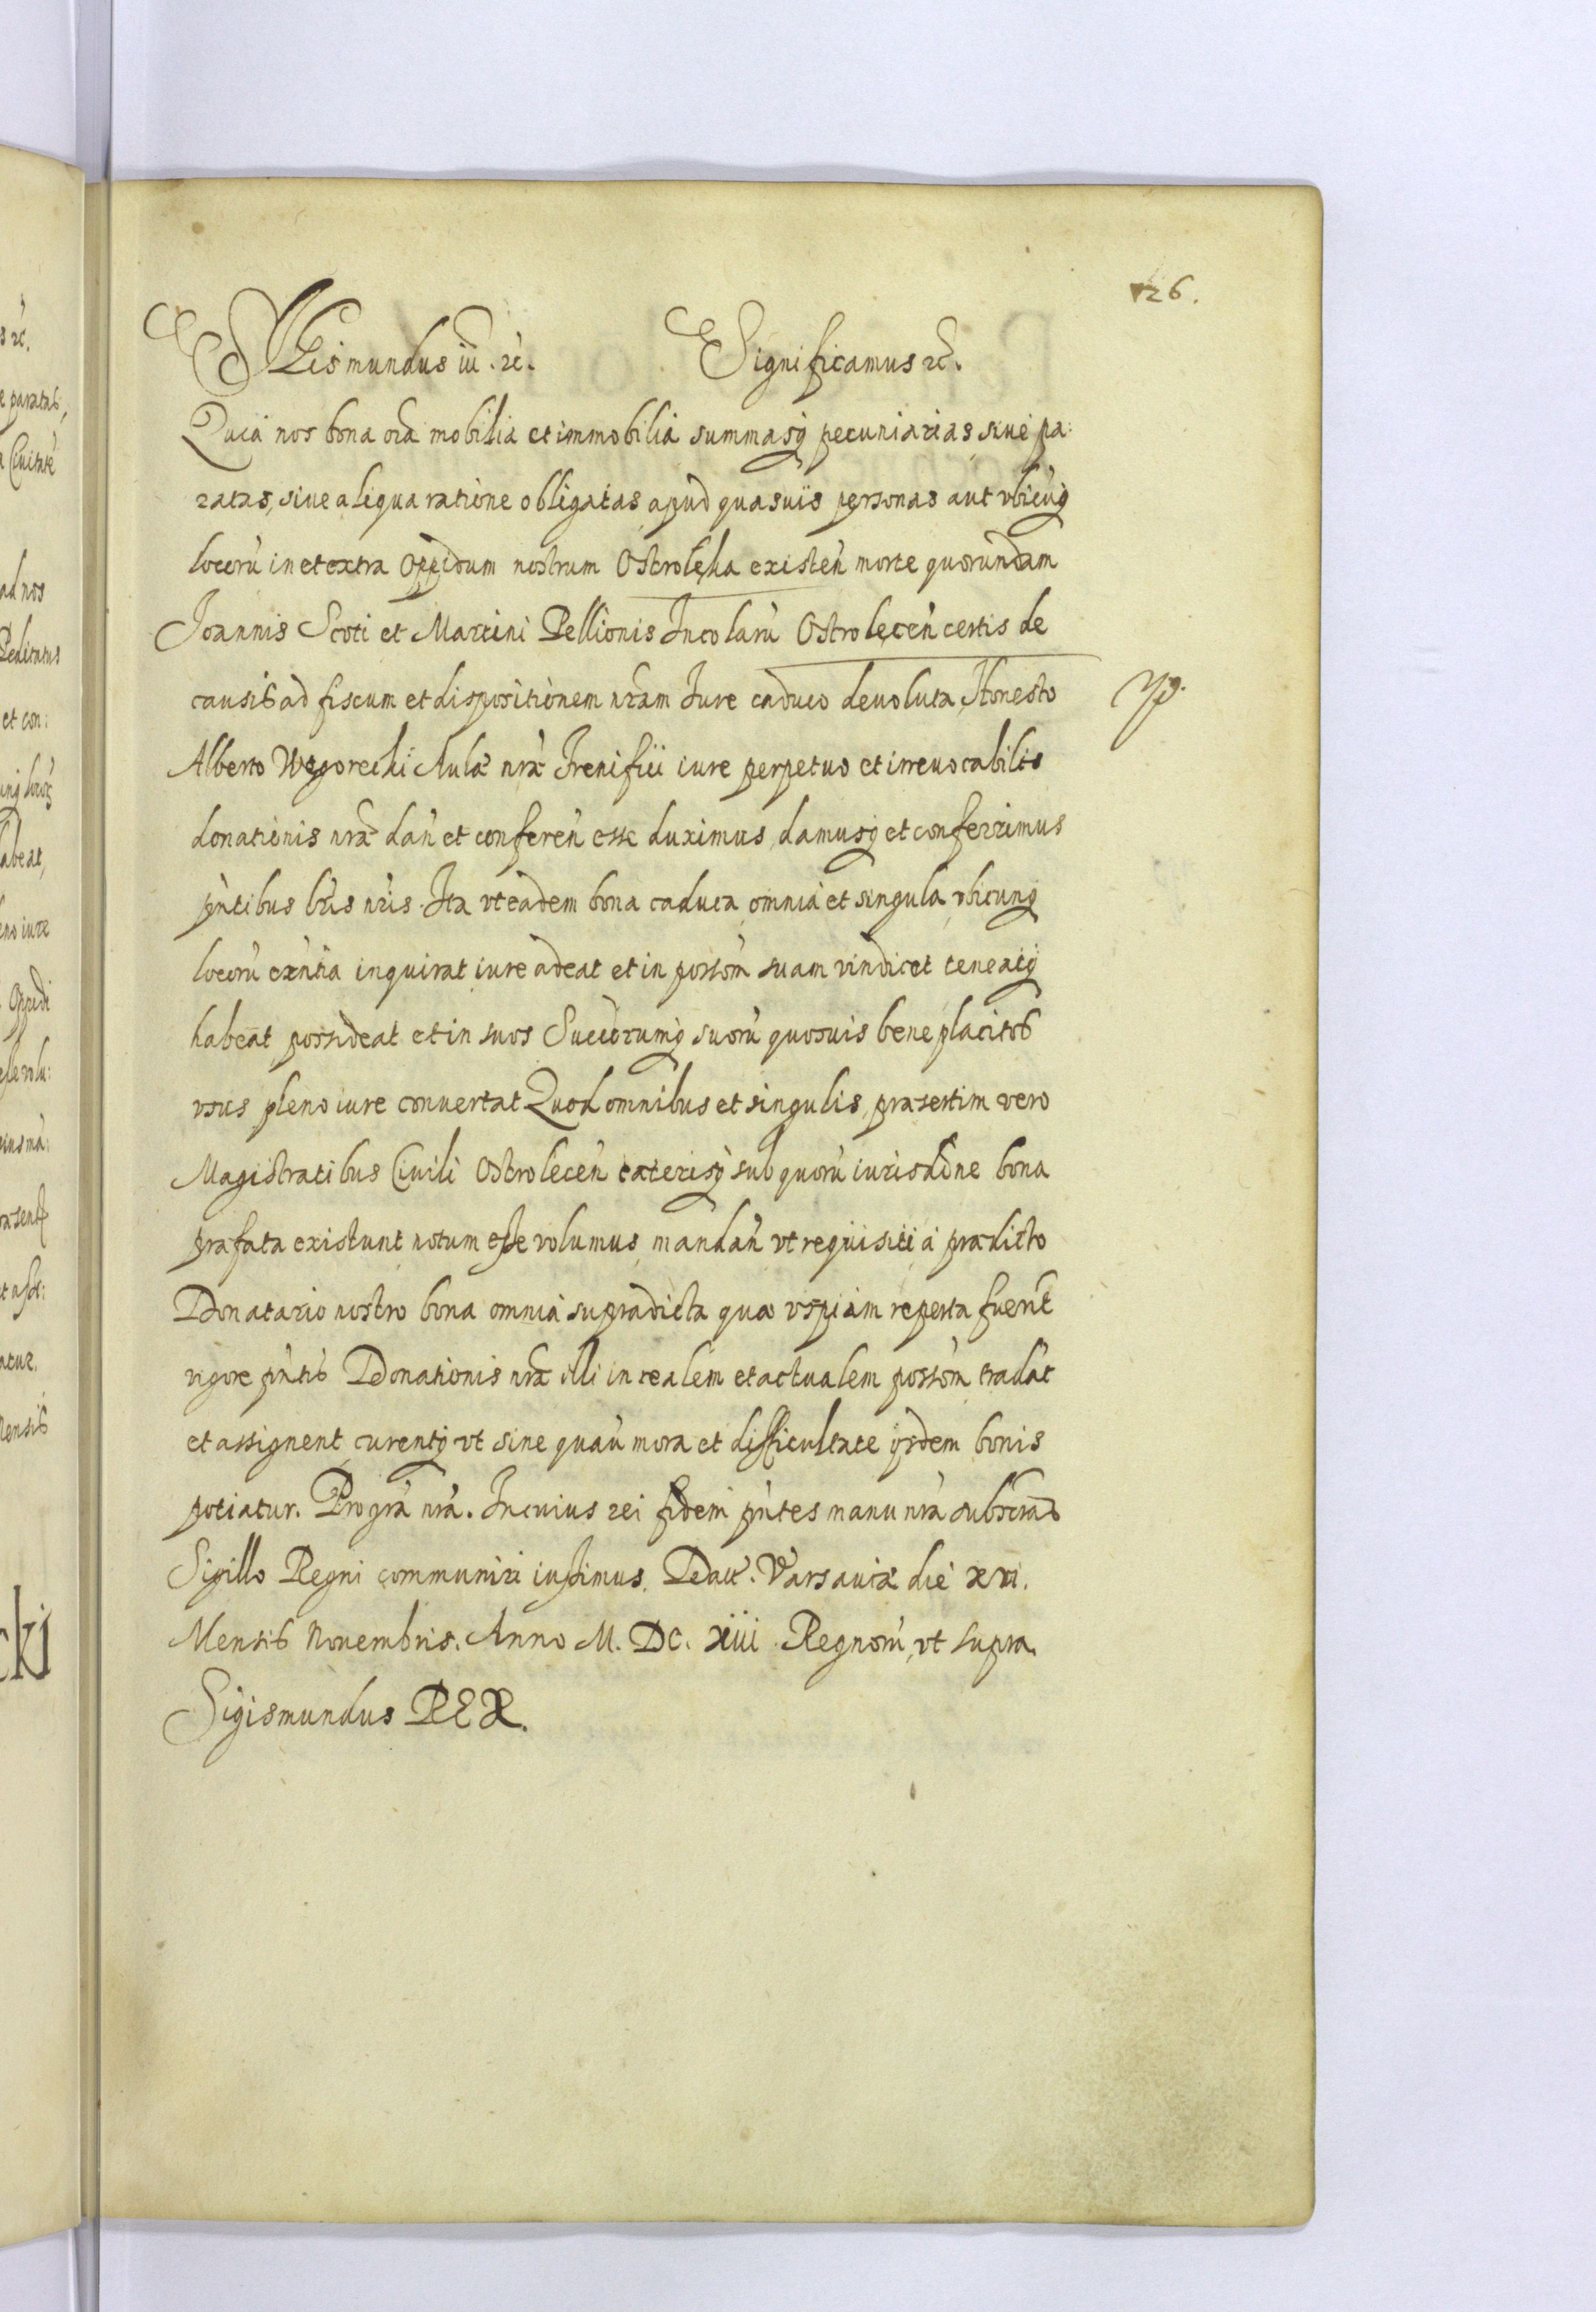 126.
Sigismundus iii. etc. Significamus etc.
Quia nos bona oĩa mobilia et immobilia summasq́ pecuniarias siue pa:
ratas, siue aliqua ratione obligatas apud quasuis personas aut vbicuq́
locorũ in et extra Oppidum nostrum Ostrolęka existeñ morte quorundam
Joannis Scoti et Martini Pellionis Incolarũ Ostroleceñ certis de
causis ad fiscum et dispositionem nr̃am Jure caduco deuoluta, Honesto
Alberto Węgorecki Aulæ nr̃æ Frenifici iure perpetuo et irreuocabilis
donationis nr̃æ dañ et confereñ esse duximus, damusq́ et conferrimus
pñtibus lr̃is nr̃is. Ita vt eadem bona caduca omnia et singula vbicunq́
locorũ exñtia inquirat iure adeat et in possõm suam vindicet teneatq́
habeat possideat et in suos Succõrumq́ suorũ quosuis bene placitos
vsus pleno iure conuertat Quod omnibus et singulis, præsertim vero
Magistratibus Ciuili Ostroleceñ cæterisq́ sub quorũ iurisdĩne bona
præfata existunt notum esse volumus, mandañ vt requisiti à prædicto
Donatario nostro bona omnia supradicta quæ vspiam reperta fuerĩt
vigore pñtis Donationis nr̃æ illi in realem et actualem possõm tradãt
et assignent curentq́ vt sine quauĩ mora et difficultate ijsdem bonis
potiatur. Pro gr̃a nr̃a. In cuius rei fidem pñtes manu nr̃a subscras
Sigillo Regni communiri iussimus. Datt. Varsauiæ die xvi.
Mensis Nouembris. Anno M. DC. xiii Regnorũ, vt supra
Sigismundus REX.